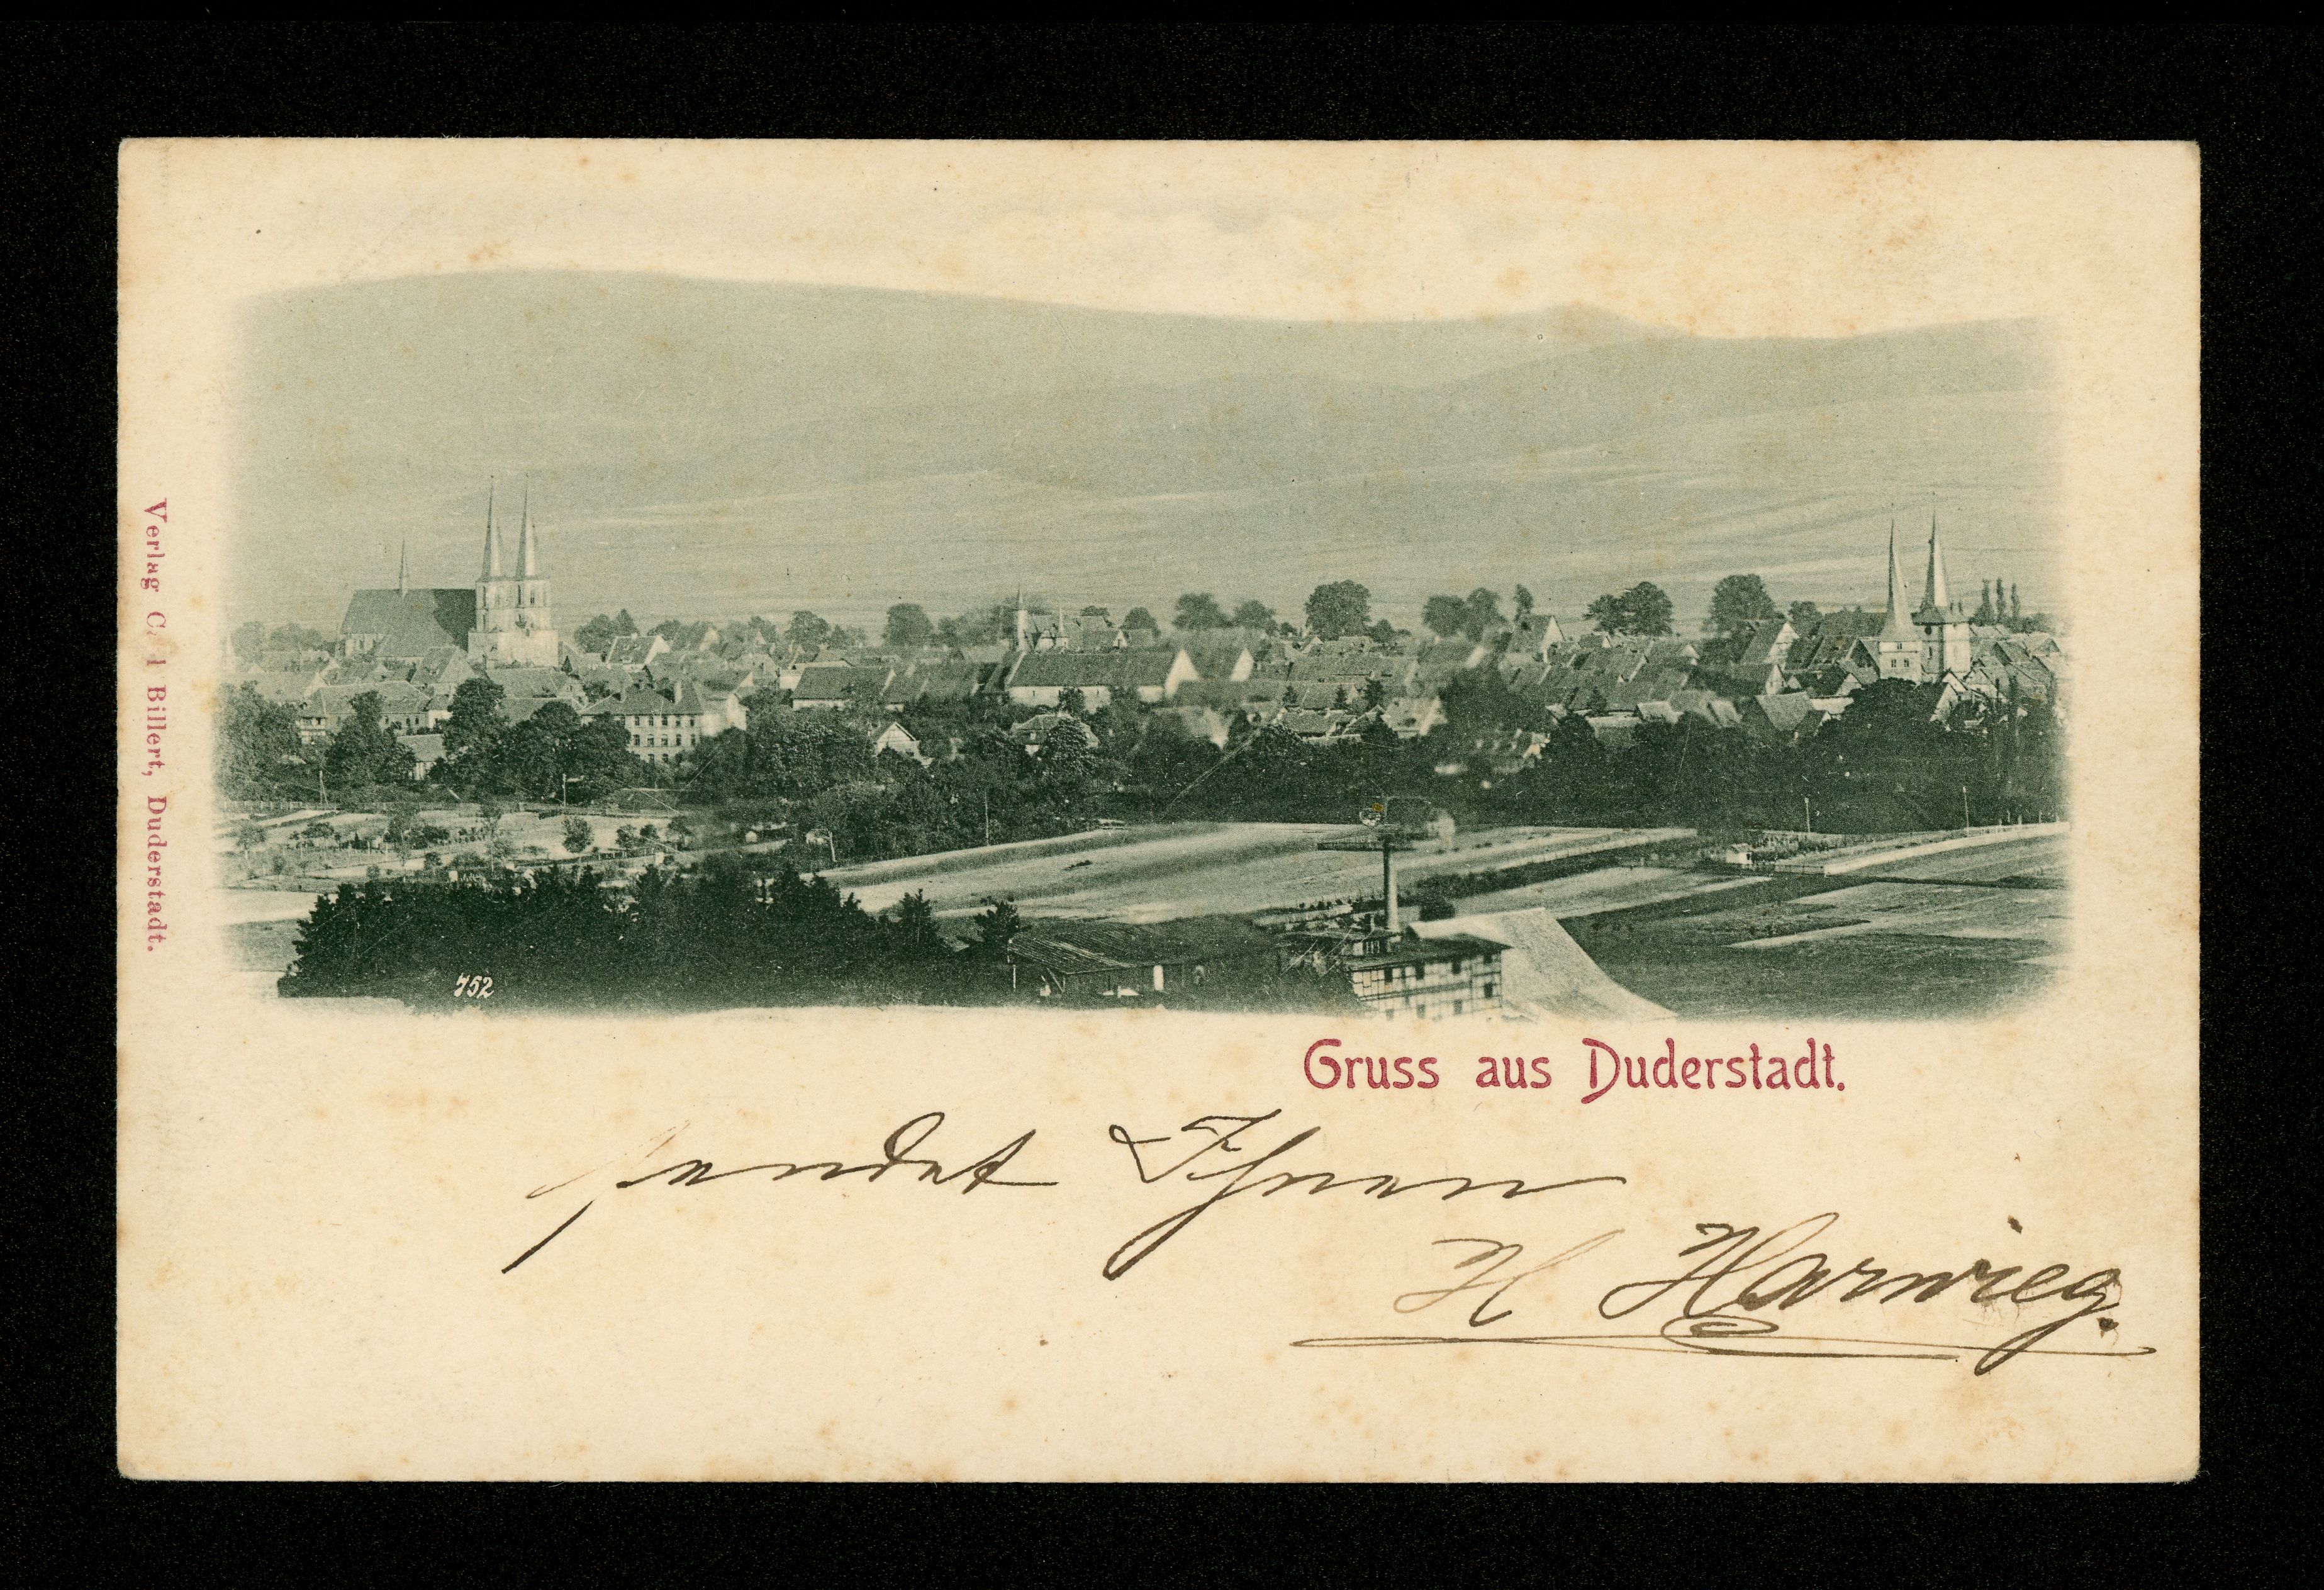 Verlag Carl Billert, Duderstadt.
752
Gruss aus Duderstadt.
sendet Ihnen
H Harwieg.